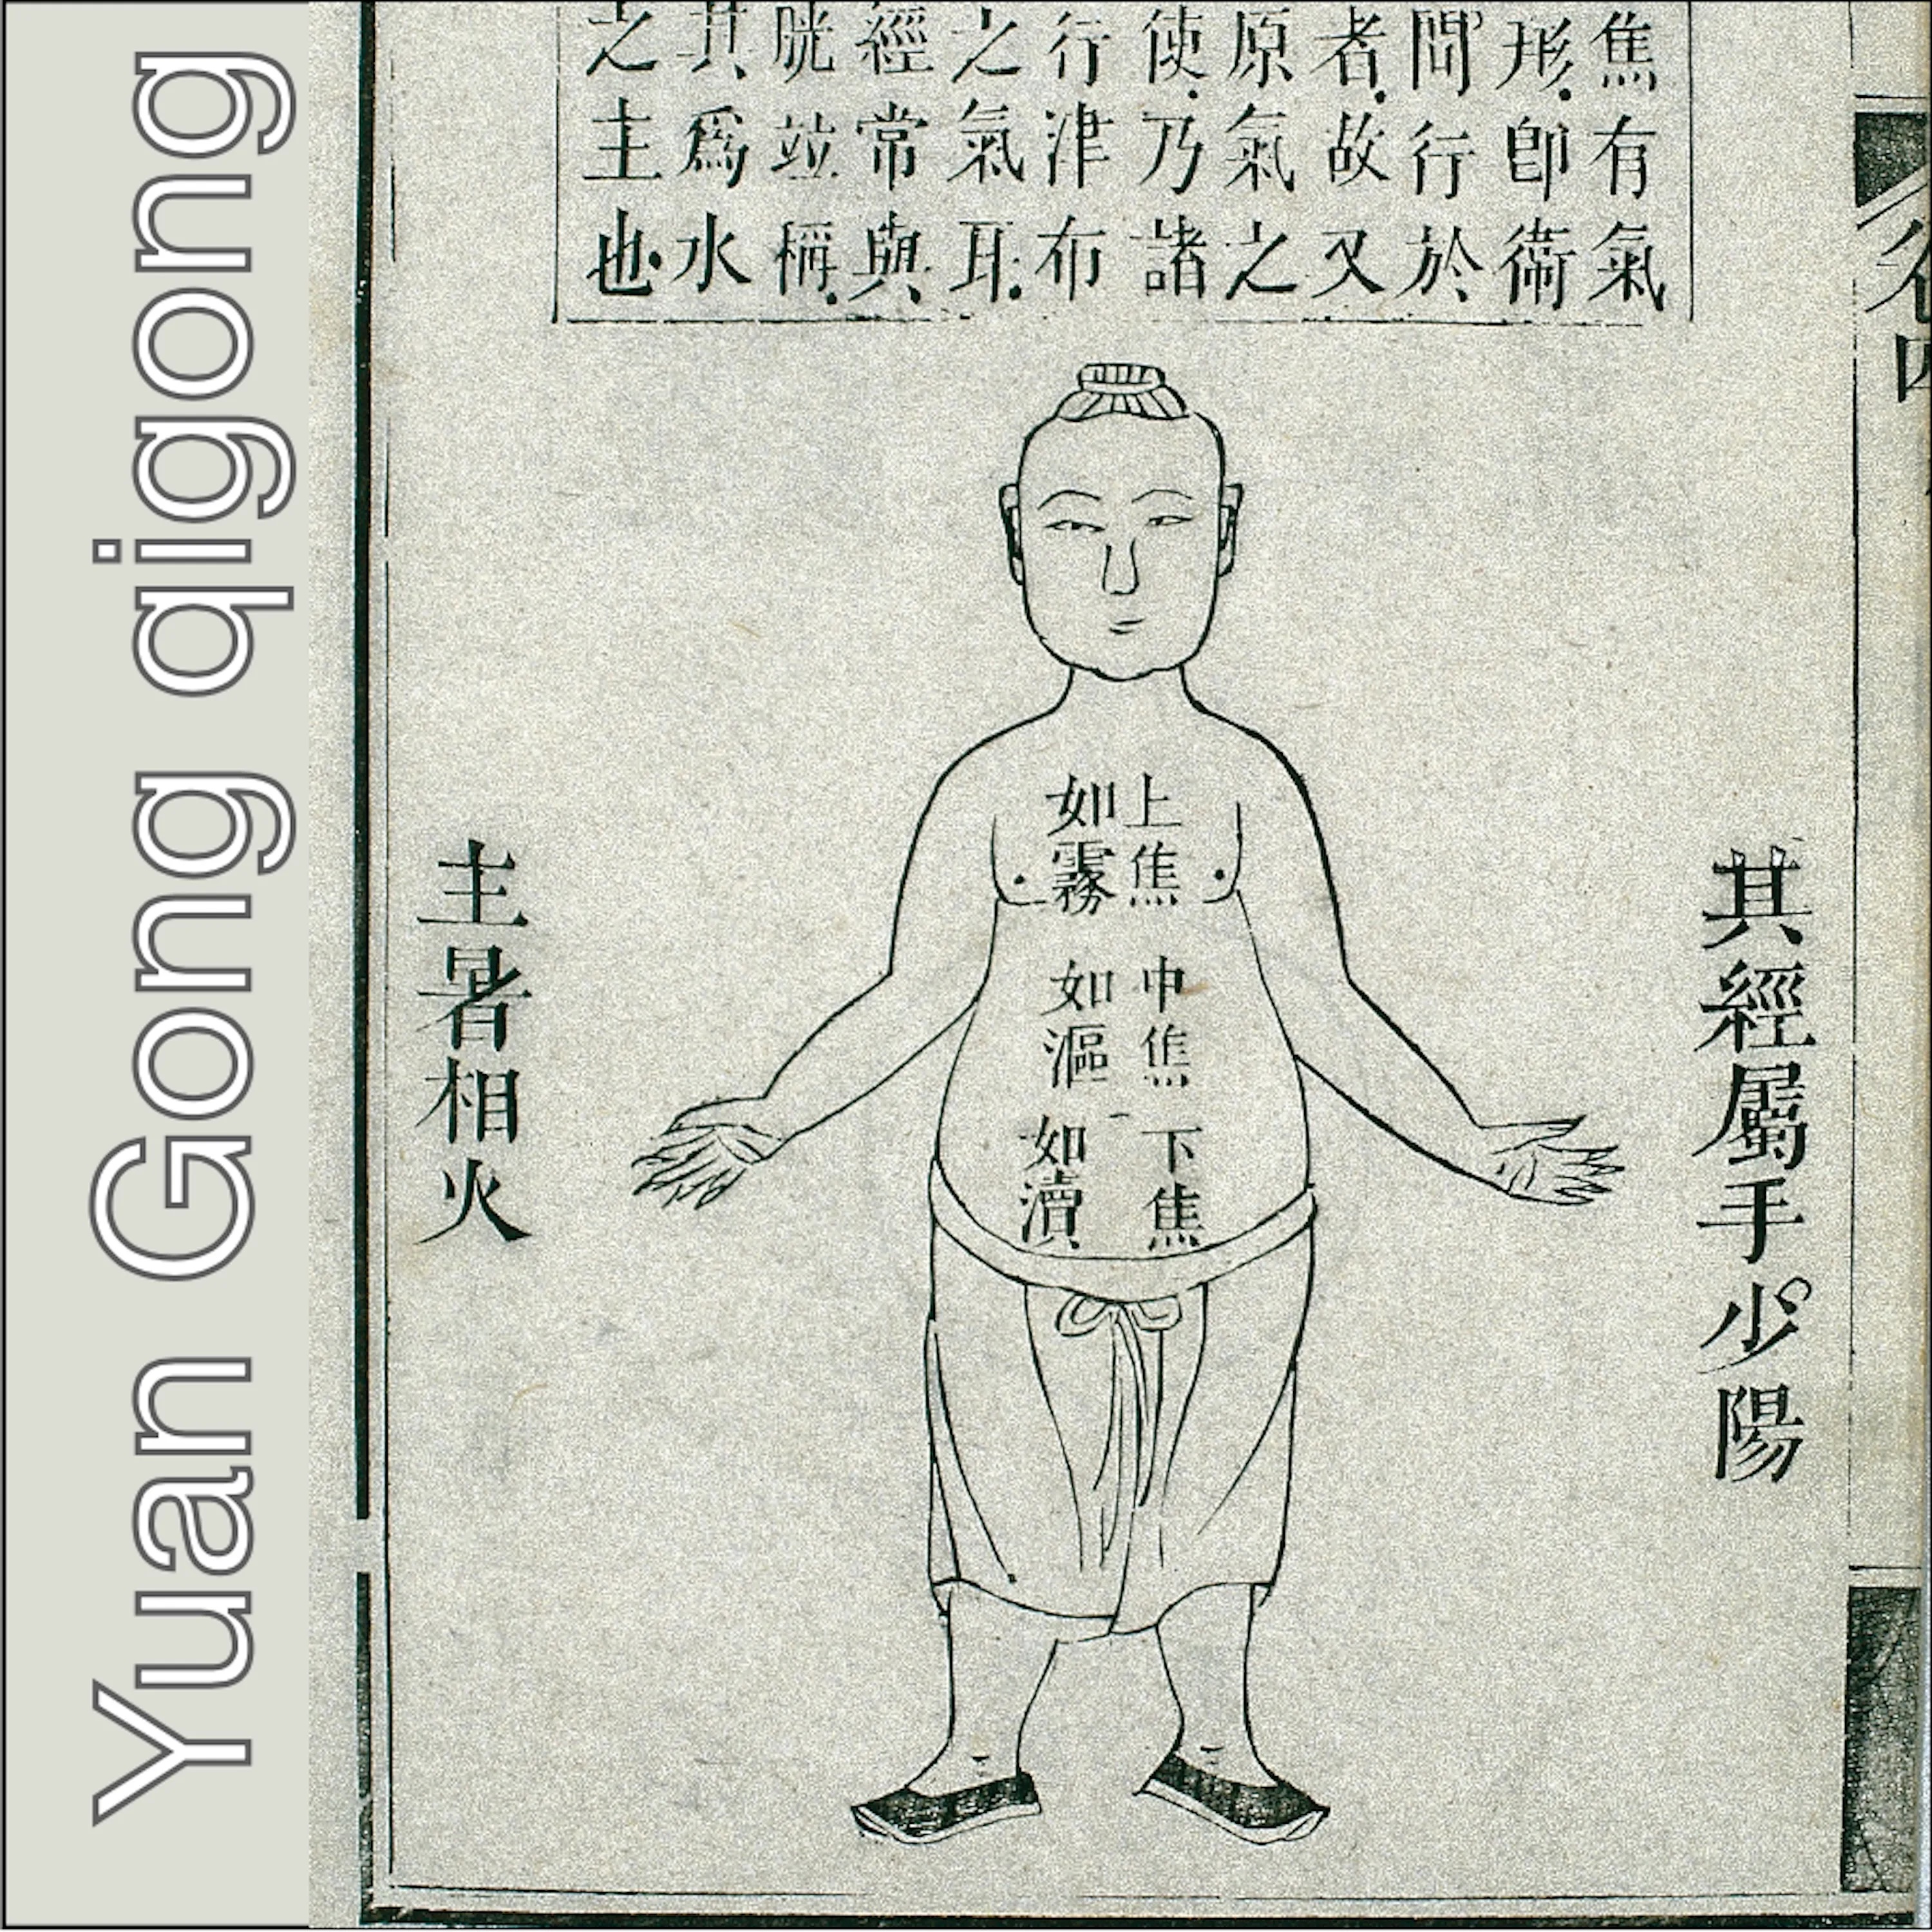 Yuan Gong qigong
焦有氣
形卽衛
間行於
者故又
原氣之
使乃諸
行津布
之氣耳
經常與
胱竝稱
其爲水
之主也
其經屬手少陽
上焦
如霧
中焦
如漚
下焦
如瀆
主暑相火